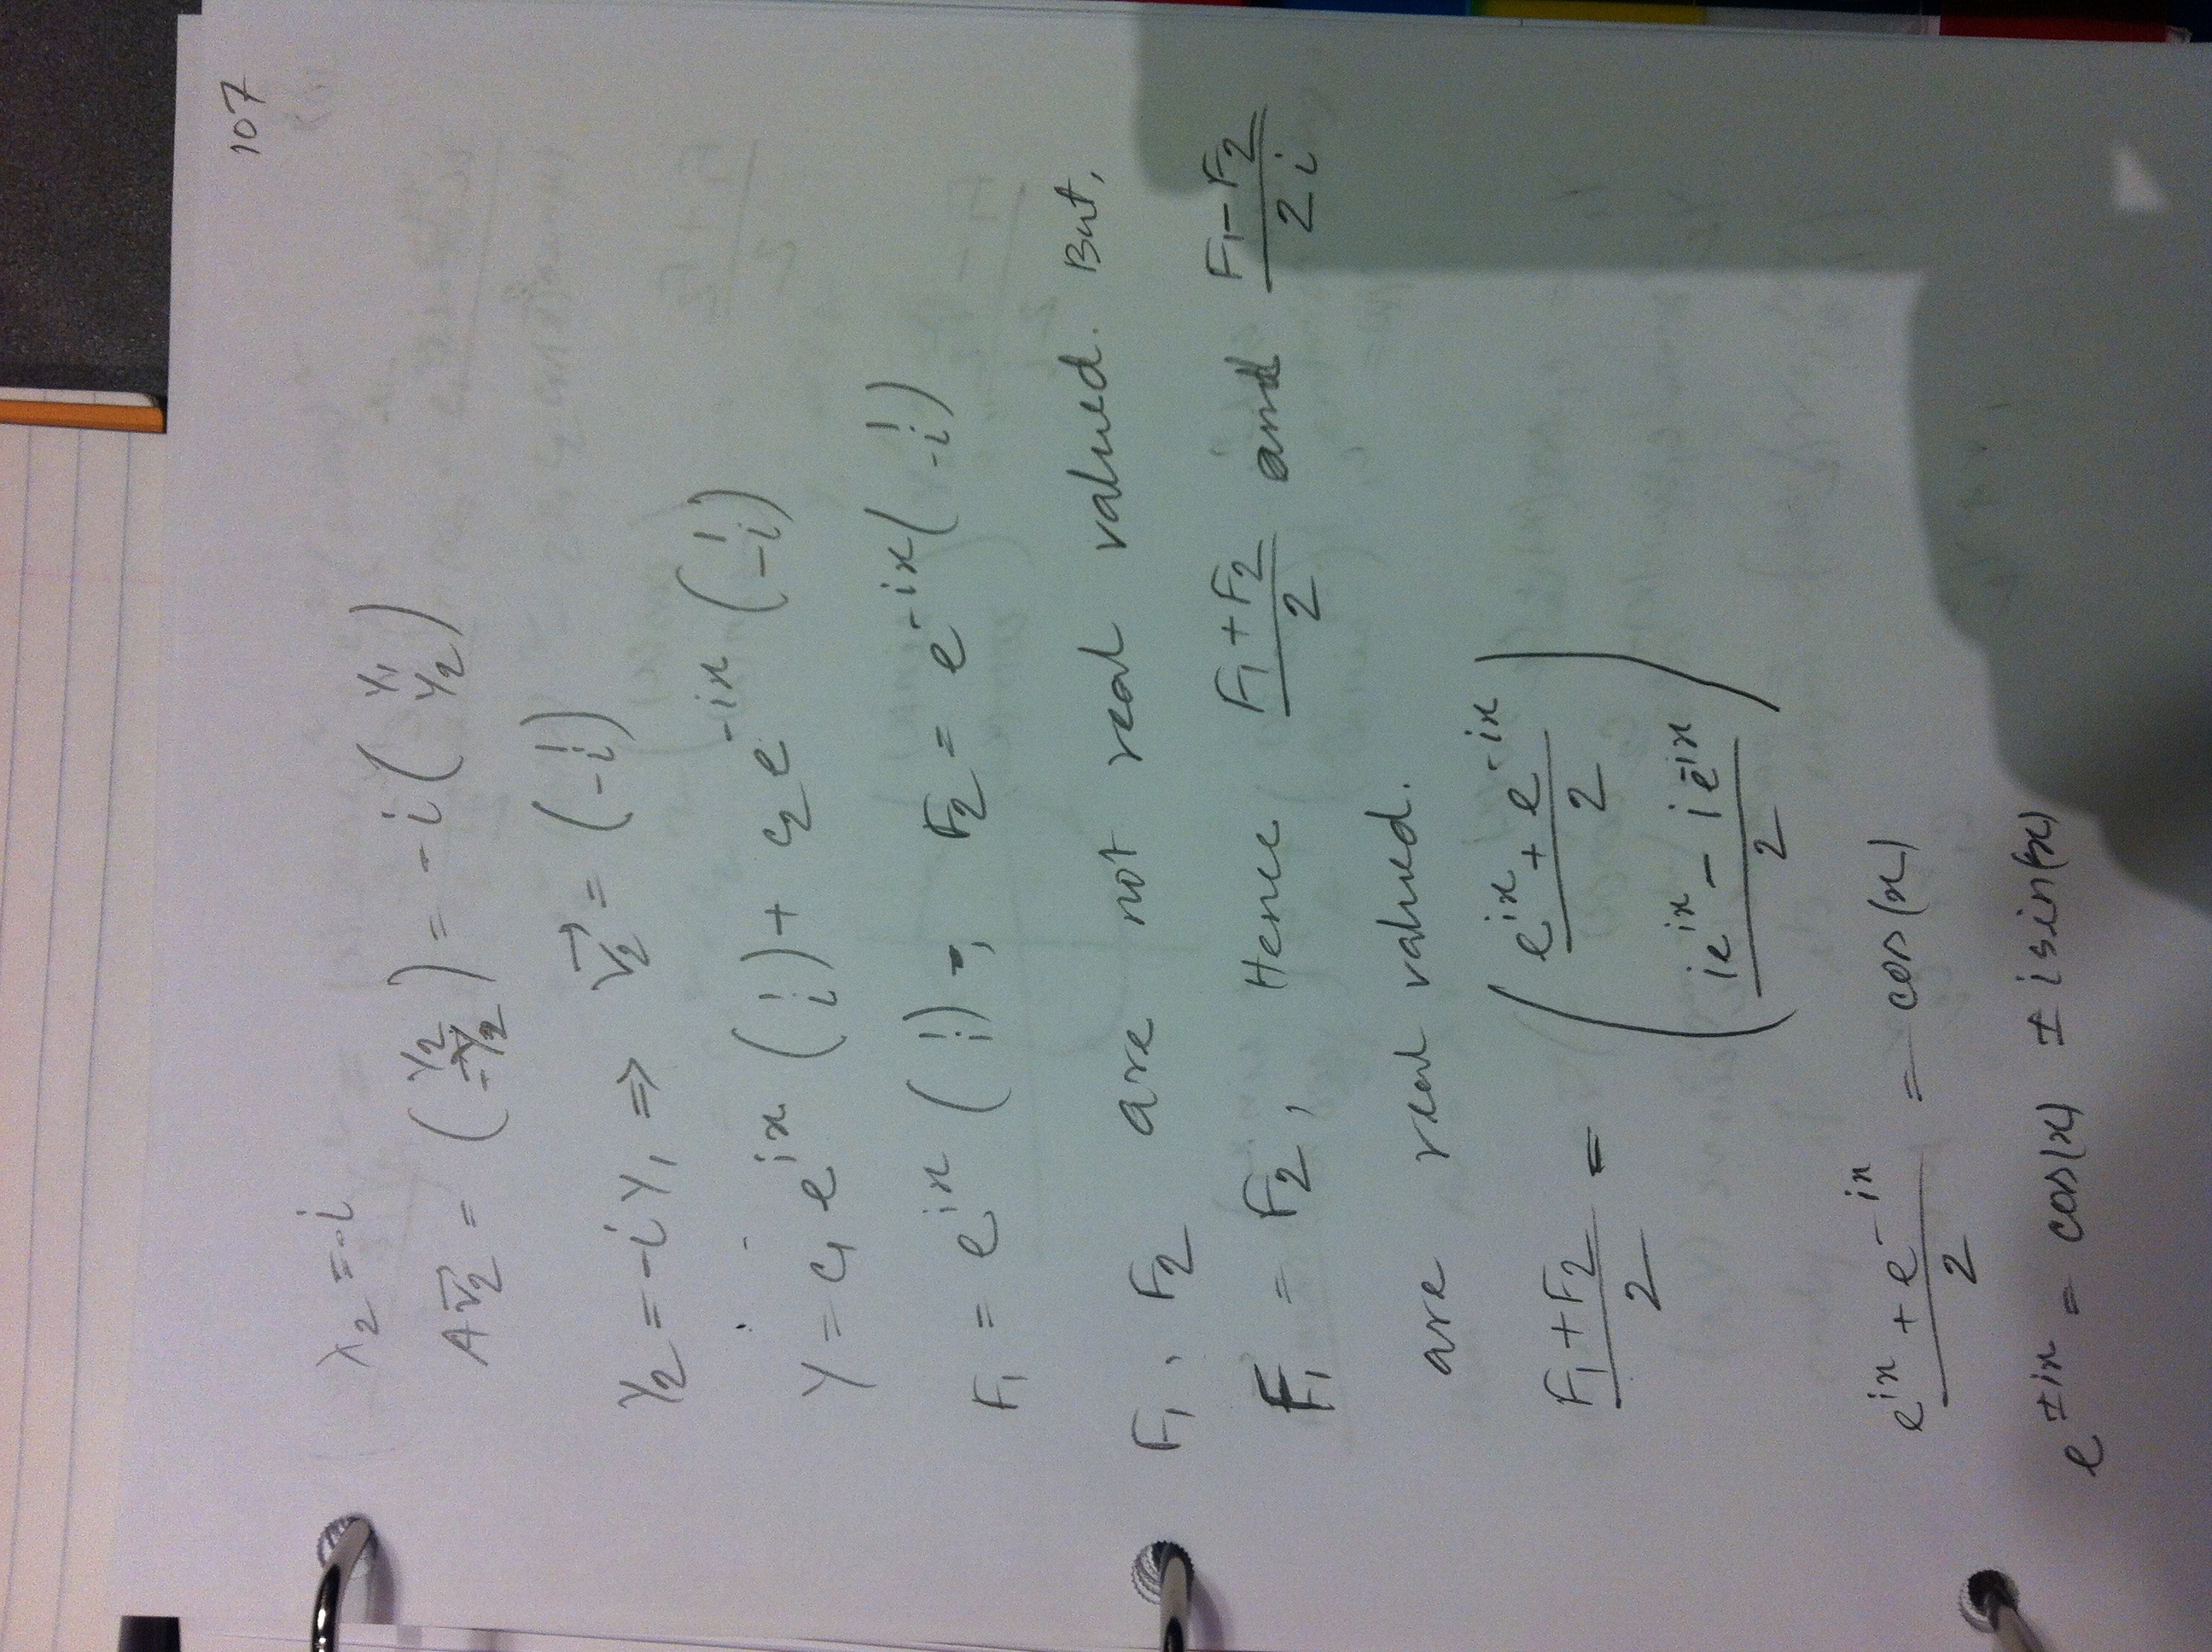 107
λ₂ = -i
Av⃗₂ = (y₂ / -y₂) = -i (y₁ / y₂)
y₂ = -i y₁ ⇒ v⃗₂ = (1 / -i)
∴ y = c₁ e^{ix} (1 / i) + c₂ e^{-ix} (1 / -i)
F₁ = e^{ix} (1 / i) ; F₂ = e^{-ix} (1 / -i)
F₁, F₂ are not real valued. But,
F₁ = F₂, Hence (F₁ + F₂)/2 and (F₁ - F₂)/2i
are real valued.
(F₁ + F₂)/2 = ( (e^{ix} + e^{-ix})/2 / (ie^{ix} - ie^{-ix})/2 )
(e^{ix} + e^{-ix})/2 = cos(x)
e^{±ix} = cos(x) ± i sin(x)